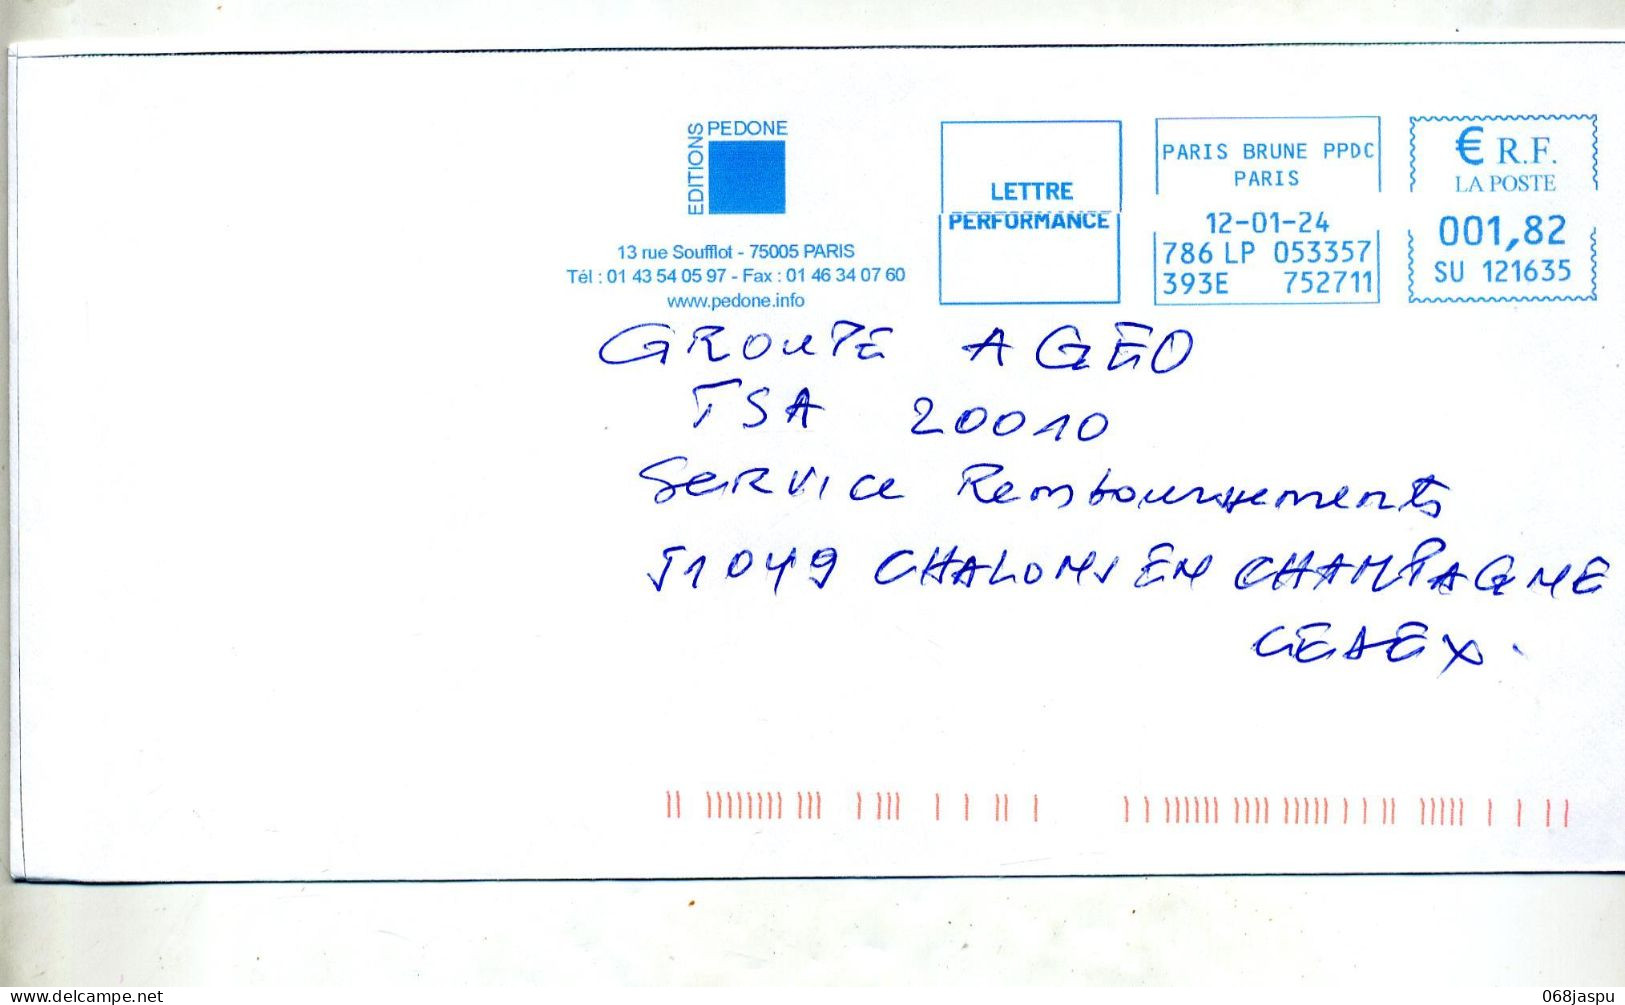 EDITIONS
PEDONE
13 rue Soufflot - 75005 PARIS
Tél : 01 43 54 05 97 - Fax : 01 46 34 07 60
www.pedone.info
LETTRE
PERFORMANCE
PARIS BRUNE PPDC
PARIS
12-01-24
786 LP 053357
393E 752711
€ R.F.
LA POSTE
001,82
SU 121635
GROUPE AGEO
TSA 20010
Service Remboursements
51049 CHALONS EN CHAMPAGNE
CEDEX.
delcampe.net
068jaspu